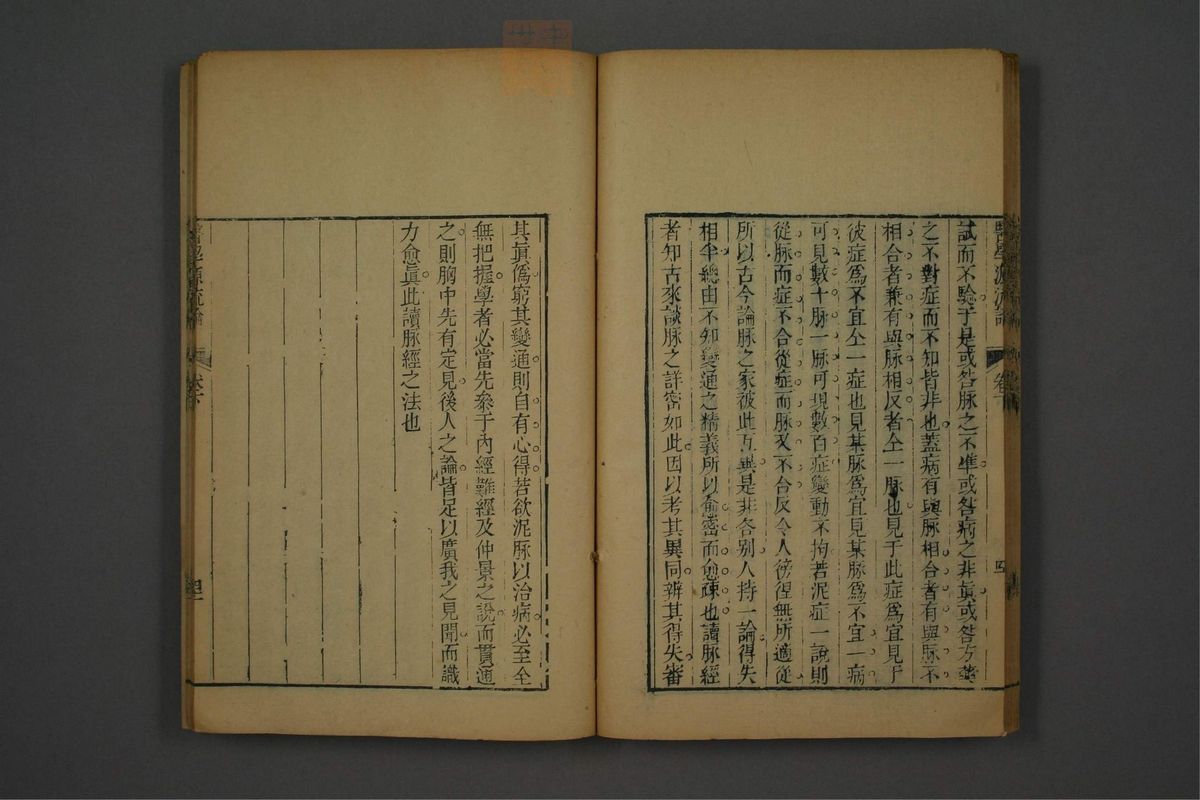 試而不驗于是或咎脉之不準或咎病之非眞或咎方藥
之不對症而不知皆非也蓋病有與脉相合者有與脉不
相合者兼有與脉相反者仝一脉也見于此症爲宜見于
彼症爲不宜仝一症也見某脉爲宜見某脉爲不宜一病
可見數十脉一脉可現數百症變動不拘若泥症一說則
從脉而症不合從症而脉又不合反令人徬徨無所適從
所以古今論脉之家彼此互異是非各别人持一論得失
相半總由不知變通之精義所以愈密而愈疎也讀脉經
者知古來談脉之詳密如此因以考其異同辨其得失審
其眞僞窮其變通則自有心得若欲泥脉以治病必至全
無把握學者必當先叅于內經難經及仲景之說而貫通
之則胸中先有定見後人之論皆足以廣我之見聞而識
力愈眞此讀脉經之法也
醫學源流論